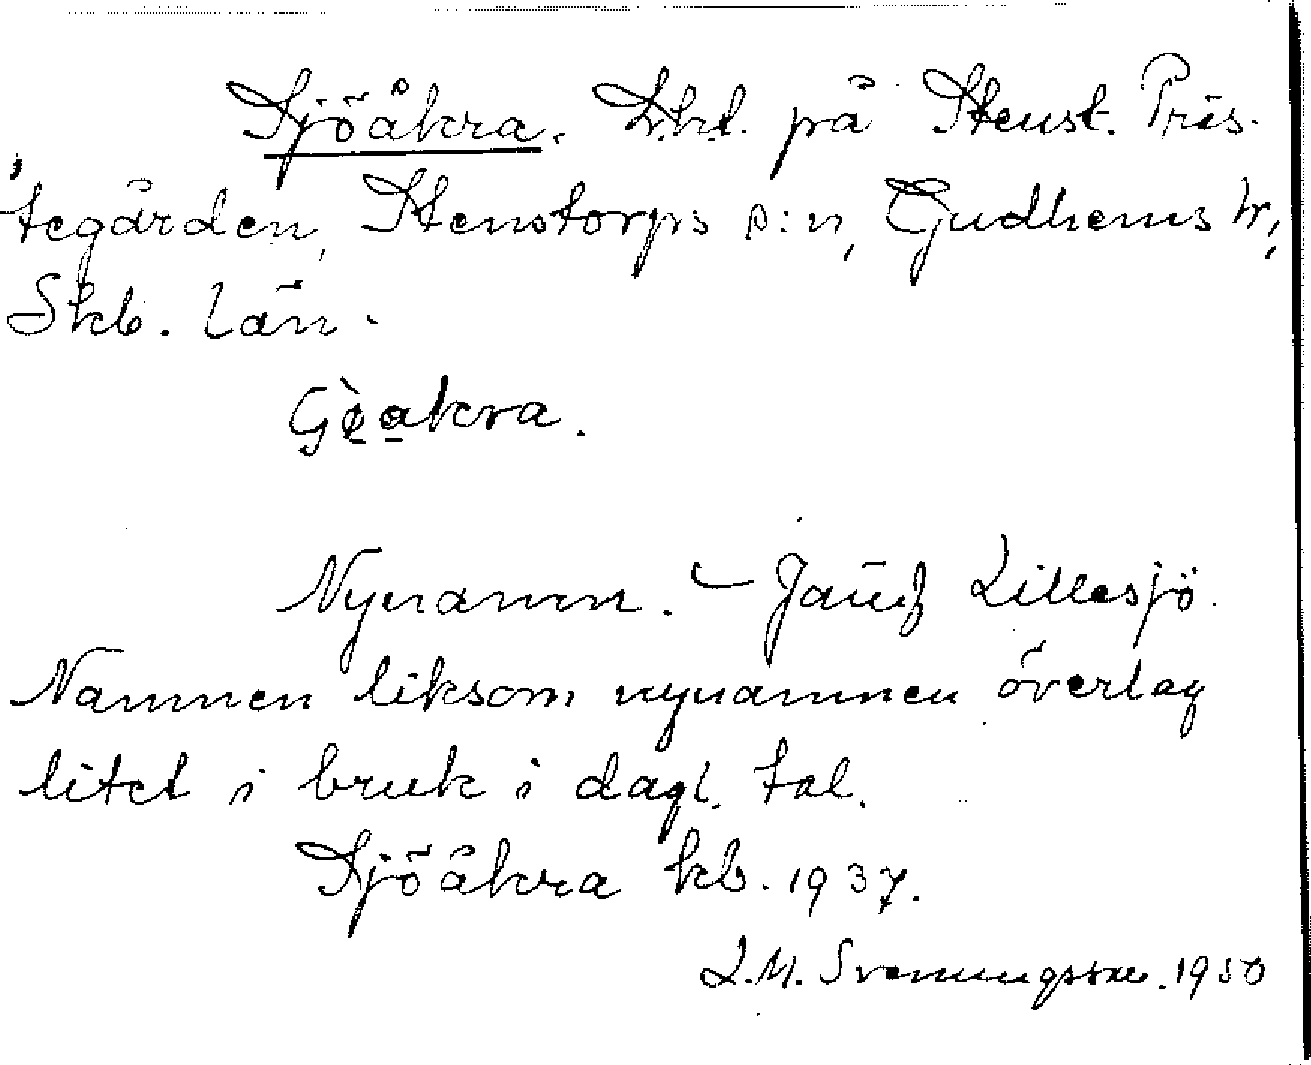 Sjöåkra. Lht. på Stenst. Präs-
tegården, Stenstorps s:n, Gudhems hr,
Skb. län.
Nynamn. – Jämf Lillesjö.
Namnen liksom nynamnen överlag
litet i bruk i dagl. tal.
Sjöåkra kb. 1937.
L.M. Svenungsson. 1930